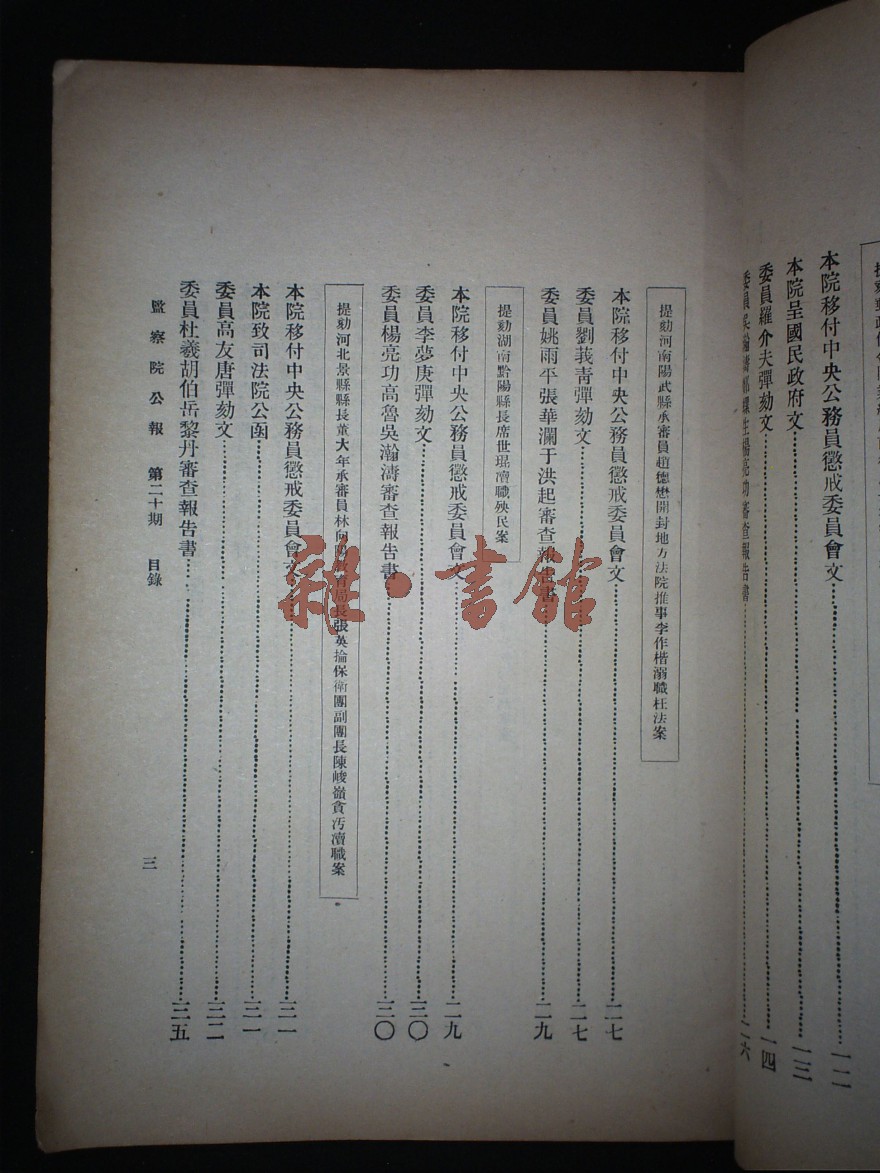 本院移付中央公務員懲戒委員會文……一二
本院呈國民政府文……一三
委員羅介夫彈劾文……一四
審查報告書……二六
提劾河南陽武縣承審員趙德懋開封地方法院推事李作楷溺職枉法案
本院移付中央公務員懲戒委員會文……二七
委員劉莪青彈劾文……二七
委員姚雨平張華瀾于洪起審查報告書……二九
提劾湖南黔陽縣長席世琨瀆職殃民案
本院移付中央公務員懲戒委員會文……二九
委員李夢庚彈劾文……三〇
委員楊亮功高魯吳瀚濤審查報告書……三〇
提劾河北景縣縣長董大年承審員林向陽教育局長張英掄保衛團副團長陳峻嶺貪汚瀆職案
本院移付中央公務員懲戒委員會文……三一
本院致司法院公函……三一
委員高友唐彈劾文……三二
委員杜羲胡伯岳黎丹審查報告書……三五
監察院公報 第二十期 目錄 三
雜·書館